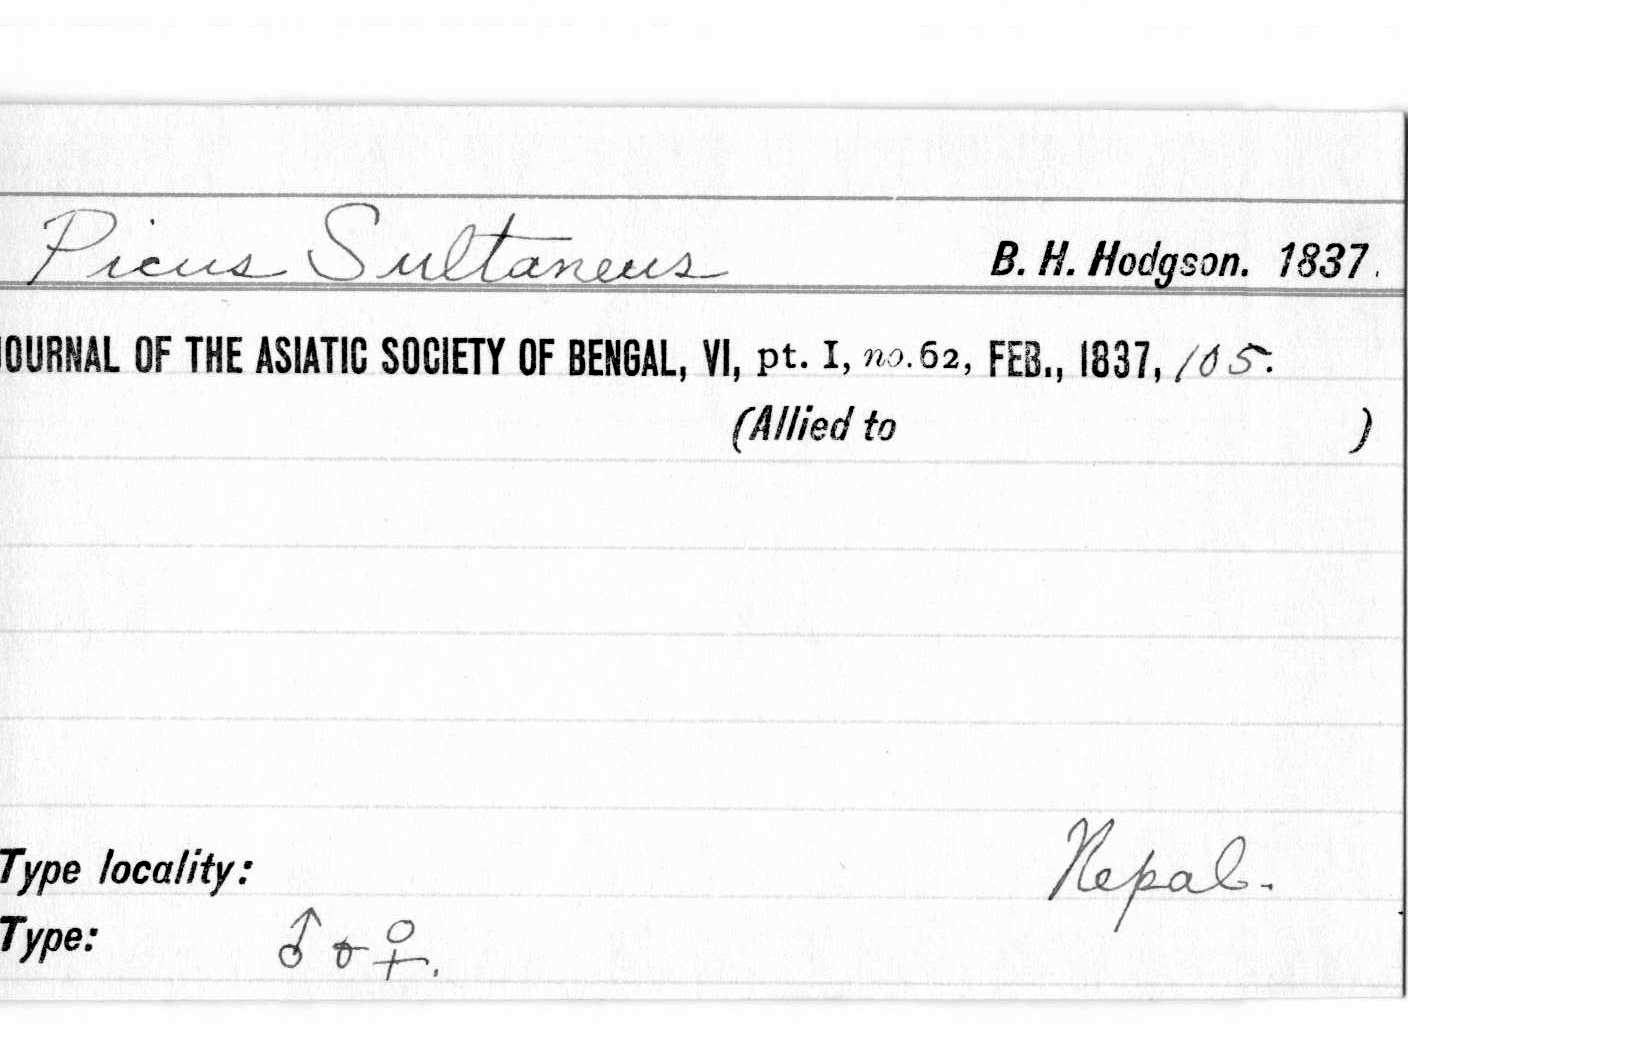 Picus Sultaneus B. H. Hodgson. 1837.
JOURNAL OF THE ASIATIC SOCIETY OF BENGAL, VI, pt. I, no. 62, FEB., 1837, 105.
(Allied to )
Type locality: Nepal.
Type: ♂ & ♀.